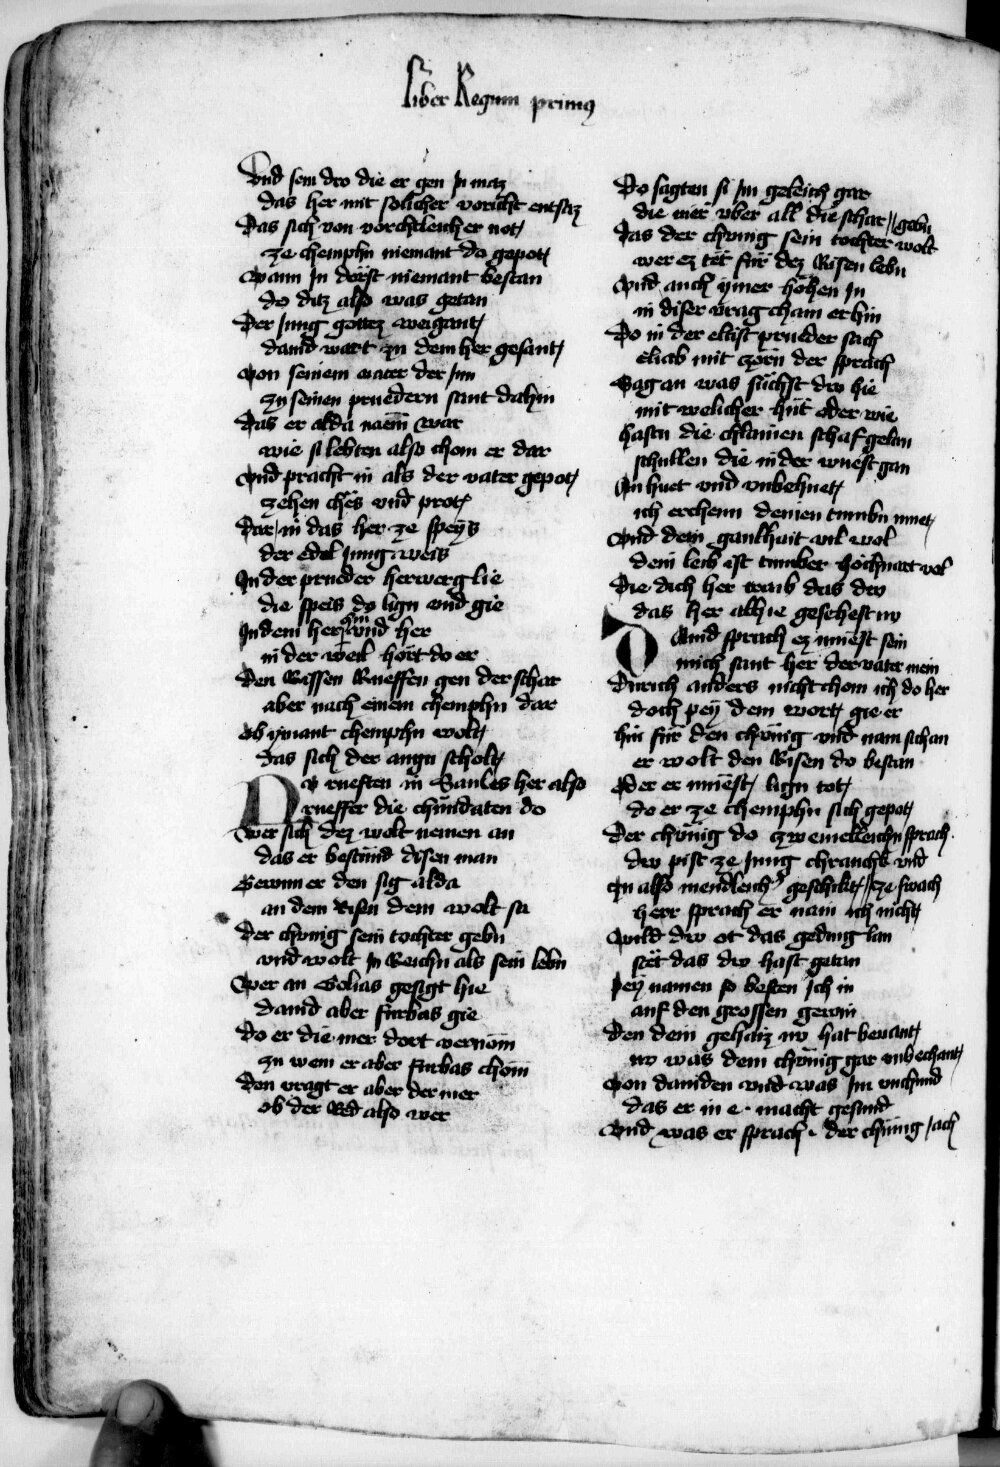 Liber Regum primus
Vnd sein dro die er gen In maz
das her mit solicher voricht entsaz
Das sich von vorchtleicher not
ze chemphn niemant do gepot
Wann In dorst niemant bestan
do ditz also was getan
Der Jung gottez weigant
dauid wart zu dem her gesant
Von seinem vater der Inn
zu seinen pruedern sant dahin
Das er alda naem war
wie si lebten also chom er dar
Vnd pracht in als der vater gepot
zehen ches vnd prot
Dar in das her ze speys
der edel Jung weis
In der prueder herwerg lie
die speis do lign vnd gie
In dem her vnd her
in der weil hort do er
Den Rissen Rueffen gen der schar
aber nach einem chemphn dar
Ob ymant chemphn wolt
das sich der angn scholt
Do rueften in Saules her also
rueffer die chundaten do
Wer sich dez wolt nemen an
das er bestund disen man
Gewunn er den sig alda
an dem Risen dem wolt sa
Der chunig sein tochter gebn
vnd wolt In Reichn als sein lebn
Wer an Golias gesigt hie
dauid aber furbas gie
Do er die mer dort vernom
zu wem er aber furbas chom
Den vragt er aber der mer
ob der Red also wer
Do sagten si Im geleich gar
die mer vber all die schar
Das der chunig sein tochter wolt gebn
wer ez tet fur dez Risen lebn
Vnd auch ymer hohen In
in diser vrag cham er hin
Do in der eltist prueder sach
eliab mit czorn der sprach
Sag an was suchst dw hie
mit welicher hut oder wie
Hastu die chlainen schaf gelan
schullen die in der wuest gan
An huet vnd vnbehuet
ich erchenn deinen tumbn muet
Vnd dein gaulhait vil wol
dein leib ist tumber hochuart vol
Die dich her traib das dw
das her alhie gesehest nw
Dauid sprach ez muest sein
mich sant her der vater mein
Durich anders nicht chom ich do her
doch pey dem wort gie er
Hin fur den chunig vnd nam sich an
er wolt den Risen do bestan
Oder er muest lign tot
do er ze chemphn sich gepot
Der chunig do czweiuelleichn sprach
dw pist ze Jung chranchk vnd ze swach
Vn also mendleich geschikt
herr sprach er nain ich nicht
Wild dw ot das geding lan
stet das dw hast getan
Pey namen so besten ich in
auf den grossen gewin
Den dein gehaiz nw hat benant
nw was dem chunig gar vnbechant
Von dauiden vnd was Im vnchund
das er in e macht gesund
Vnd was er sprach der chunig sach